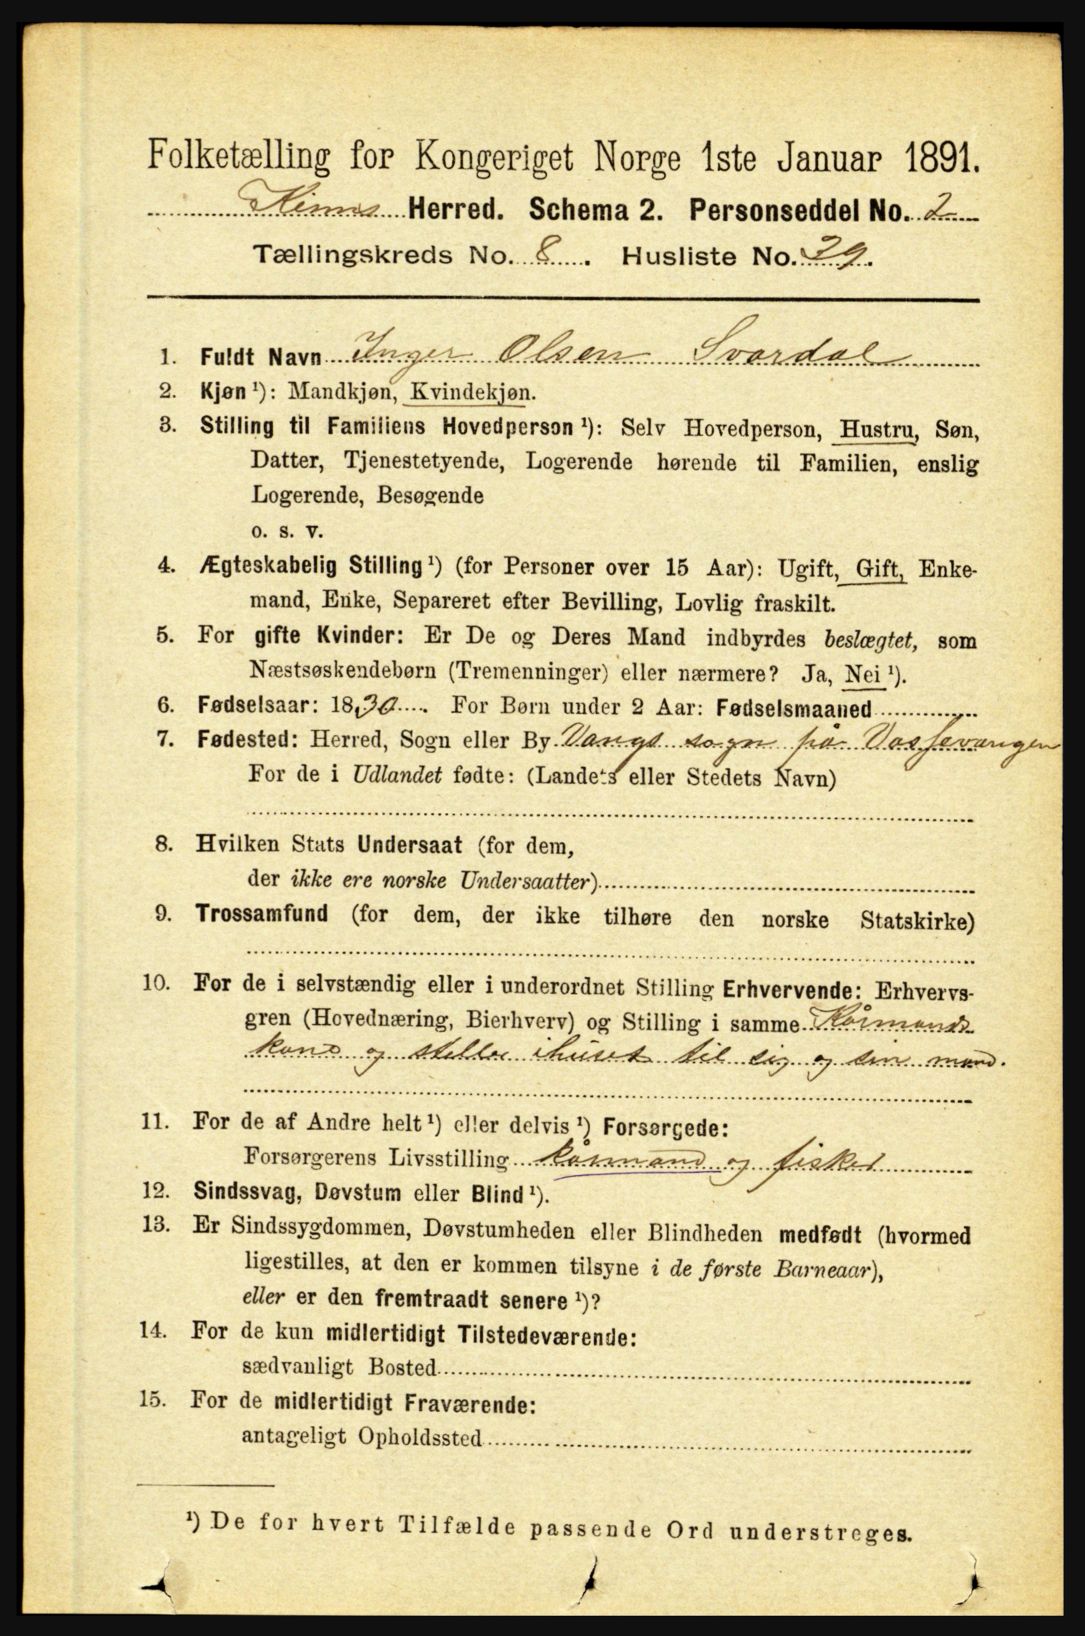 Folketælling for Kongeriget Norge 1ste Januar 1891.
Kinns Herred. Schema 2. Personseddel No. 2
Tællingskreds No. 8. Husliste No. 39.
1. Fuldt Navn Inger Olsen Svardal
2. Kjøn ¹): Mandkjøn, Kvindekjøn.
3. Stilling til Familiens Hovedperson ¹): Selv Hovedperson, Hustru, Søn,
Datter, Tjenestetyende, Logerende hørende til Familien, enslig
Logerende, Besøgende
o. s. v.
4. Ægteskabelig Stilling ¹) (for Personer over 15 Aar): Ugift, Gift, Enke-
mand, Enke, Separeret efter Bevilling, Lovlig fraskilt.
5. For gifte Kvinder: Er De og Deres Mand indbyrdes beslægtet, som
Næstsøskendebørn (Tremenninger) eller nærmere? Ja, Nei ¹).
6. Fødselsaar: 1830. For Børn under 2 Aar: Fødselsmaaned
7. Fødested: Herred, Sogn eller By Vangs sogn på Vossevangen
For de i Udlandet fødte: (Landets eller Stedets Navn)
8. Hvilken Stats Undersaat (for dem,
der ikke ere norske Undersaatter)
9. Trossamfund (for dem, der ikke tilhøre den norske Statskirke)
10. For de i selvstændig eller i underordnet Stilling Erhvervende: Erhvervs-
gren (Hovednæring, Bierhverv) og Stilling i samme Kårmands
kone og steller ihuset til sig og sin mand.
11. For de af Andre helt ¹) eller delvis ¹) Forsørgede:
Forsørgerens Livsstilling kårmand og fisker
12. Sindssvag, Døvstum eller Blind ¹).
13. Er Sindssygdommen, Døvstumheden eller Blindheden medfødt (hvormed
ligestilles, at den er kommen tilsyne i de første Barneaar),
eller er den fremtraadt senere ¹)?
14. For de kun midlertidigt Tilstedeværende:
sædvanligt Bosted
15. For de midlertidigt Fraværende:
antageligt Opholdssted
¹) De for hvert Tilfælde passende Ord understreges.